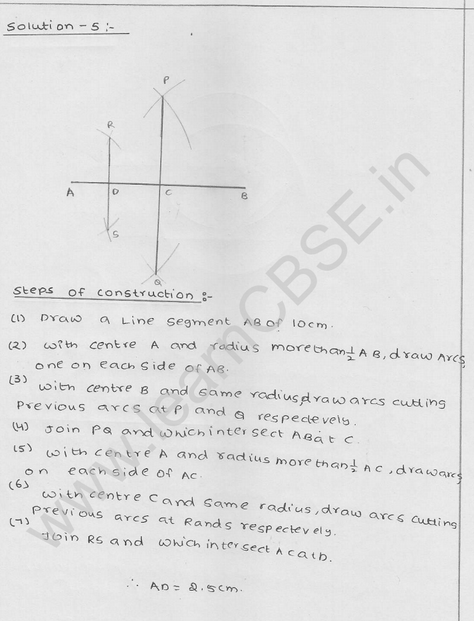 Solution - 5 :-
P
R
A D C B
S
Q
Steps of construction :-
(1) Draw a Line segment AB of 10cm.
(2) with centre A and radius more than 1/2 AB, draw Arcs,
one on each side of AB.
(3) with centre B and same radius, draw arcs cutting
Previous arcs at P and Q respectevely.
(4) Join PQ and which intersect AB at C.
(5) with centre A and radius more than 1/2 AC, draw arcs
on each side of AC.
(6) with centre C and same radius, draw arcs cutting
Previous arcs at R and S respectevely.
(7) Join RS and which intersect AC at D.
∴ AD = 2.5cm.
www.learnCBSE.in